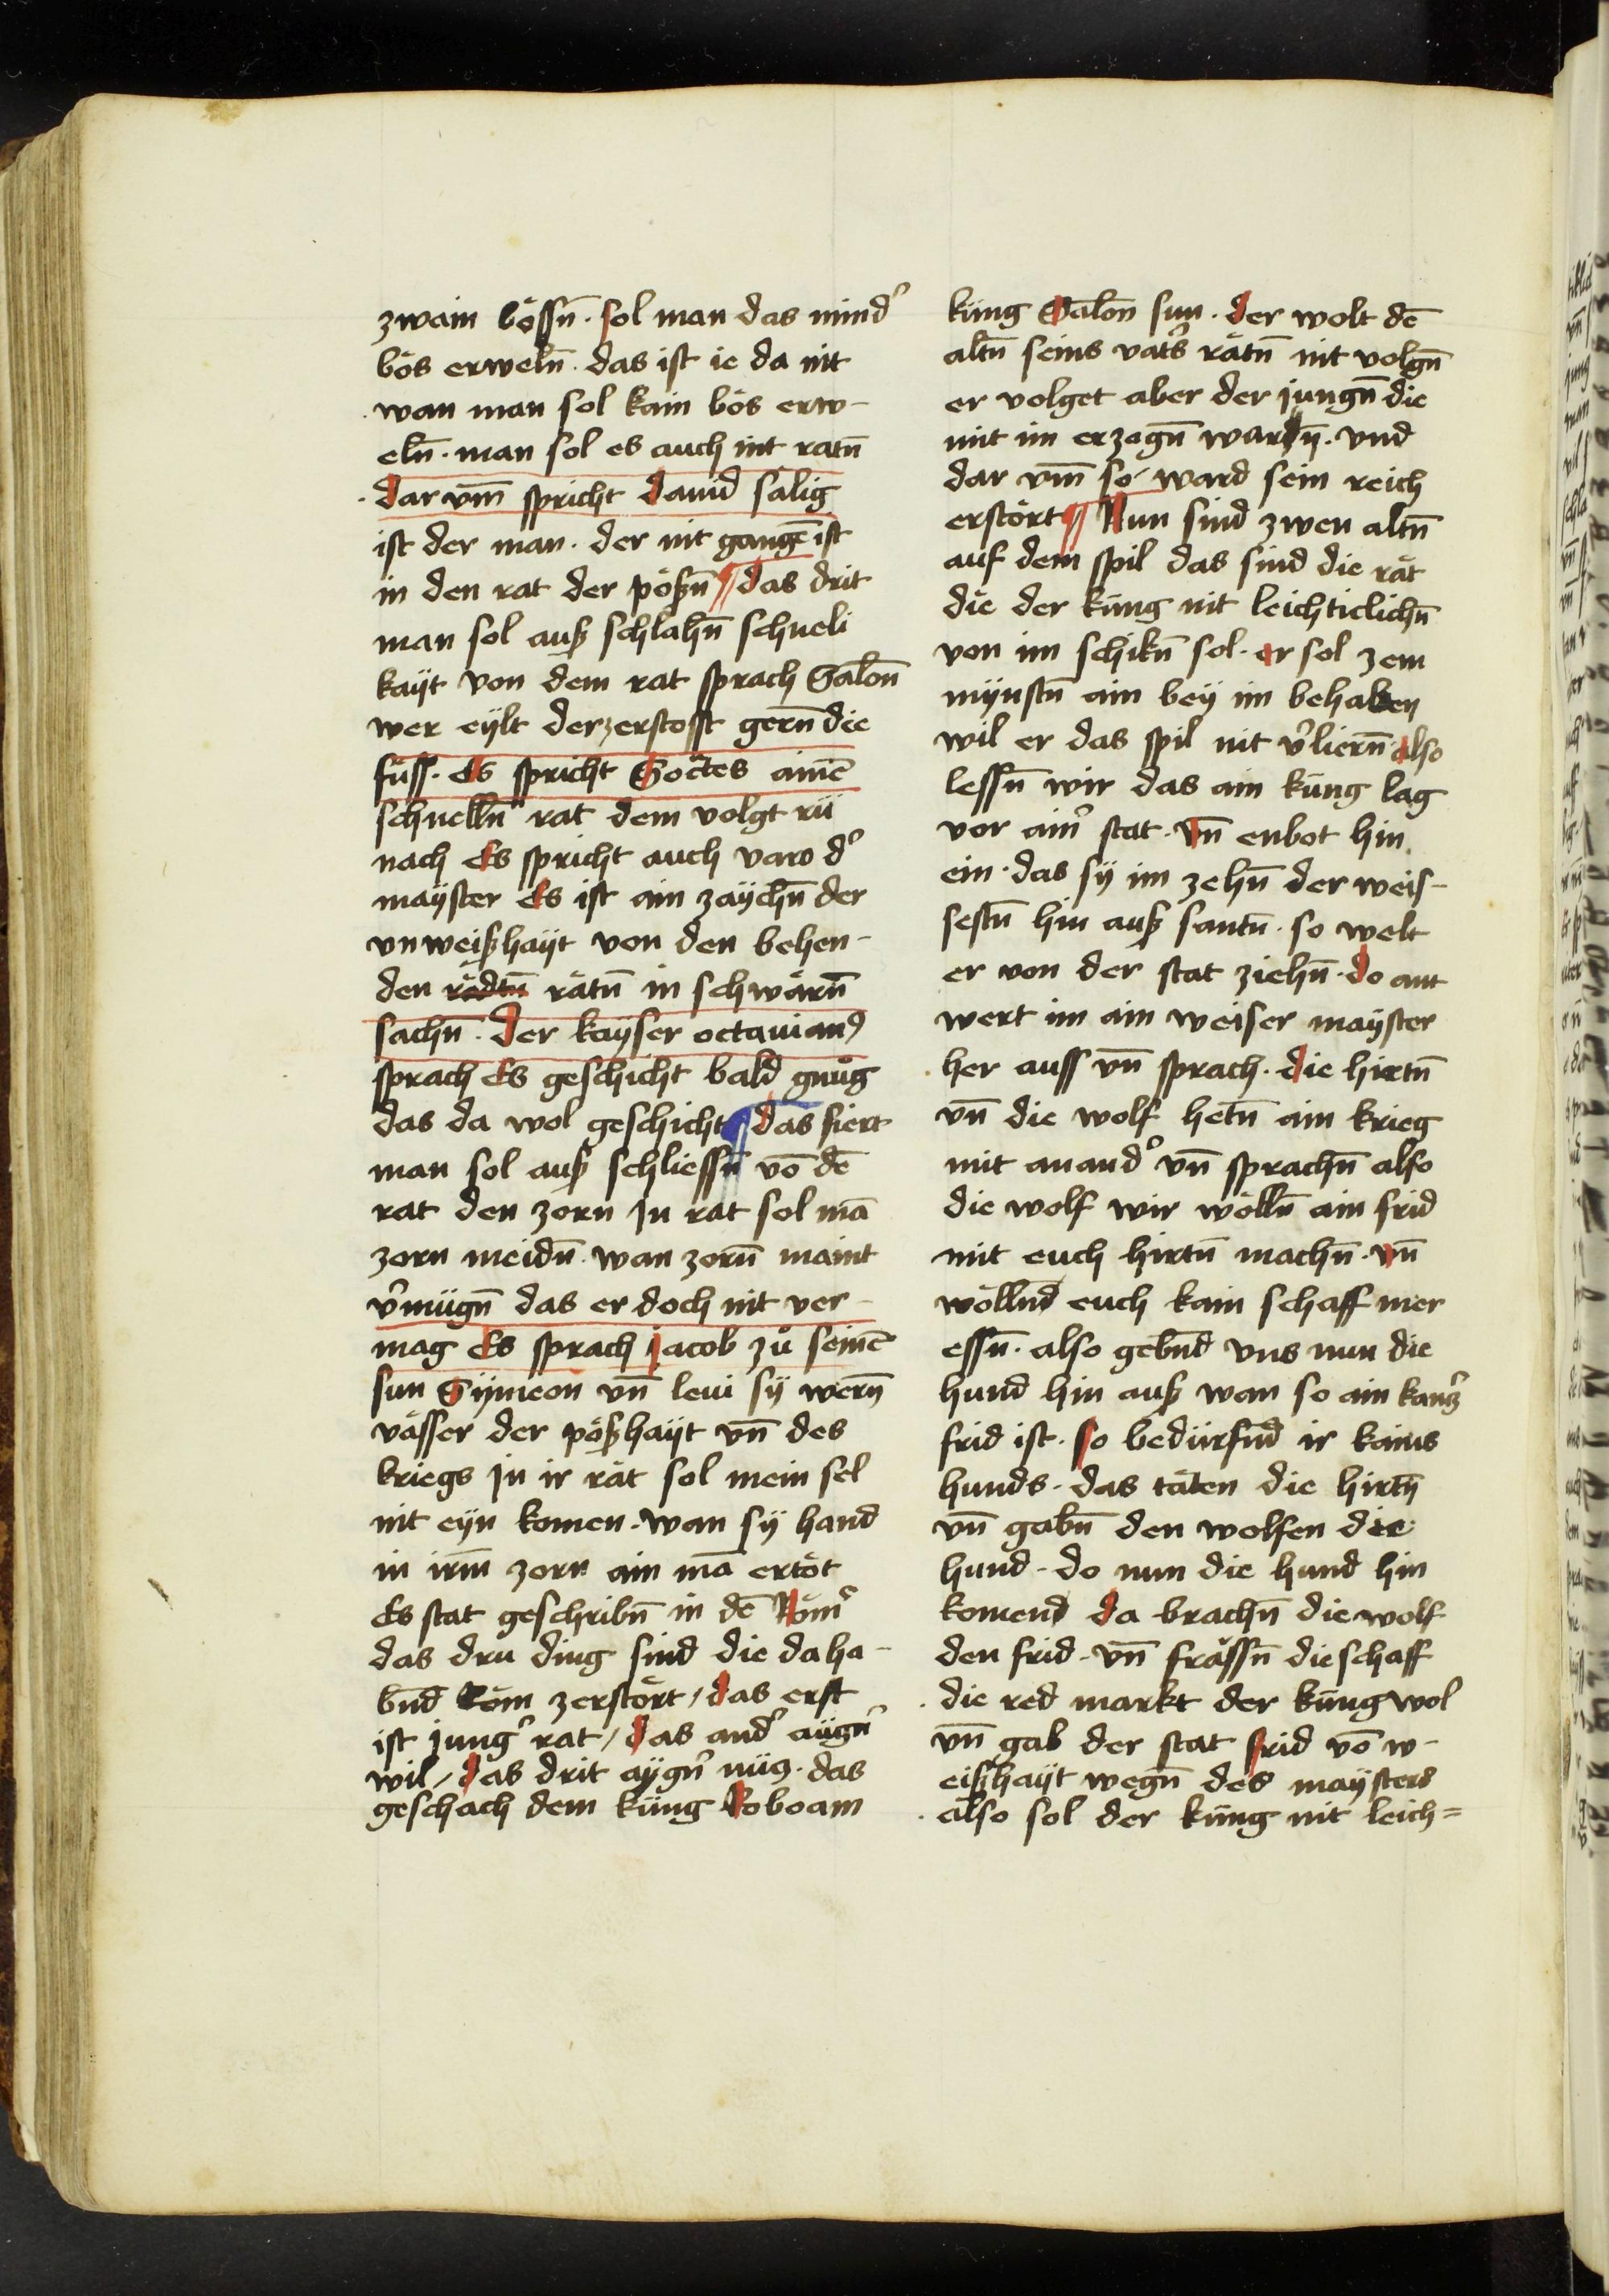 zwain bössn̄ · sol man das mind᾽
bös erweln̄ · das ist ie da nit
wan man sol kain bös erw-
eln̄ · man sol es auch nit ratn̄
dar vm̄ spricht dauid salig
ist der man · der nit gangē ist
in den rat der pößn̄ ¶ das drit
man sol auß schlahn̄ schneli
kayt von dem rat sprach Salon̄
wer eylt der zerstosst gern̄ die
füss · Es spricht Socrtes ainē
schnelln̄ rat dem volgt rü
nach Es spricht auch varo d᾽
mayster Es ist ain zaychn̄ der
vnweißhayt von den behen-
den rädtn̄ rätn̄ in schwärn̄
sachn̄ · Der kayser octauian⁹
sprach Es geschicht bald gnůg
das da wol geschicht ¶ das fiert
man sol auß schliessn̄ vō dē
rat den zorn Jn rat sol mā
zorn meidn̄ · wan zorn̄ maint
v᾽mügn̄ das er doch nit ver-
mag Es sprach jacob zů seinē
sun Symeon vn̄ leui sy wern̄
vässer der pößhayt vn̄ des
kriegs Jn ir rät sol mein sel
nit eyn komen · wan sy hand
in irm̄ zorn ain mā ertöt
Es stat geschribn̄ in dē Röm᾽
das dru ding sind die da ha-
bnd̄ Röm zerstört / das erst
ist jung᾽ rat / das and᾽ aügn᾽
wil / das drit aygn᾽ nüz · das
geschach dem küng Roboam
küng Salon̄ sun · der wolt dē
altn̄ seins vat᾽s rätn̄ nit volgn̄
er volget aber der jungn̄ die
mit im erzogn̄ warn̄ · vnd
dar vm̄ so ward sein reich
erstört ¶ Nun sind zwen altn̄
auf dem spil das sind die rät
die der küng nit leichticlichn̄
von im schikn̄ sol · er sol zem
mynstn̄ ain bey im behaben
wil er das spil nit v᾽liern̄ also
lessn̄ wir das ain küng lag
vor ain᾽ stat · vn̄ enbot hin
ein · das sy im zehn̄ der weis-
sestn̄ hin auß santn̄ · so welt
er von der stat ziehn̄ · do ant
wert im ain weiser mayster
her auss vn̄ sprach · die hirtn̄
vn̄ die wolf hetn̄ ain krieg
mit anand᾽ vn̄ sprachn̄ also
die wolf wir wölln̄ ain frid
mit euch hirtn̄ machn̄ · vn̄
wöllnd̄ euch kain schaff mer
essn̄ · also gebnd̄ vns nun die
hund hin auß wan so ain kancz᾽
frid ist · so bedürfnd̄ ir kains
hunds · das täten die hirtn̄
vn̄ gabn̄ den wolfen die
hund · do nun die hund hin
komend da brachn̄ die wolf
den frid · vn̄ frässn̄ die schaff
die red markt der küng wol
vn̄ gab der stat frid vō w-
eißhayt wegn̄ des maysters
also sol der küng nit leich=